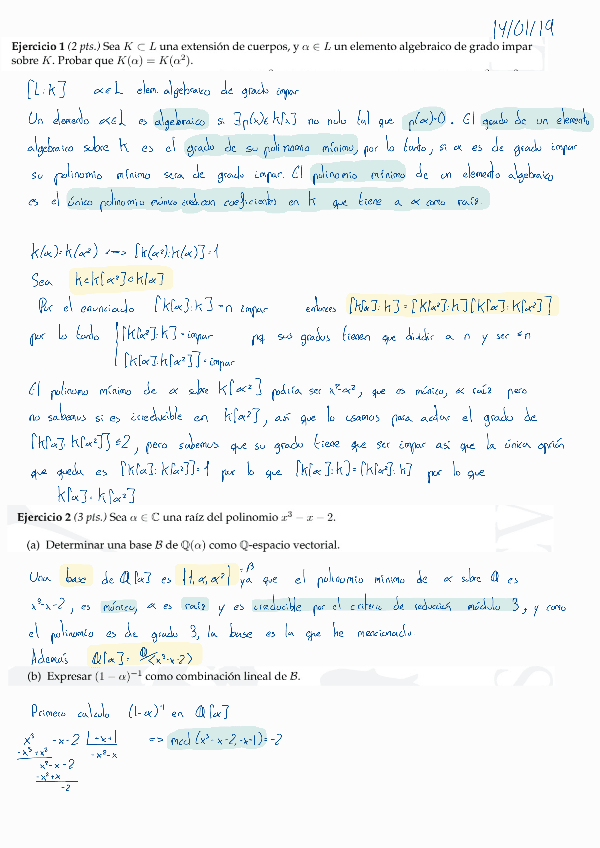 14/01/19
Ejercicio 1 (2 pts.) Sea K ⊂ L una extensión de cuerpos, y α ∈ L un elemento algebraico de grado impar
sobre K. Probar que K(α) = K(α²).
[L:K] α∈L elem. algebraico de grado impar
Un elemento α∈L es algebraico si ∃p(x)∈K[x] no nulo tal que p(α)=0. El grado de un elemento
algebraico sobre K es el grado de su polinomio mínimo, por lo tanto, si α es de grado impar
su polinomio mínimo sera de grado impar. El polinomio mínimo de un elemento algebraico
es el único polinomio mónico con coeficientes en K que tiene a α como raíz
K(α)=K(α²) <-> [K(α²):K(α)]=1
Sea K⊂K[α²]⊂K[α]
Por el enunciado [K[α]:K]=n impar entonces [K[α]:K]=[K[α²]:K][K[α]:K[α²]]
por lo tanto [K[α²]:K]=impar pq sus grados tienen que dividir a n y ser ≤n
[K[α]:K[α²]]=impar
El polinomio mínimo de α sobre K[α²] podría ser x²-α², que es mónico, α raíz pero
no sabemos si es irreducible en K[α²], así que lo usamos para acotar el grado de
[K[α]:K[α²]]≤2, pero sabemos que su grado tiene que ser impar así que la única opción
que queda es [K[α]:K[α²]]=1 por lo que [K[α]:K]=[K[α²]:K] por lo que
K[α]=K[α²]
Ejercicio 2 (3 pts.) Sea α ∈ ℂ una raíz del polinomio x³ − x − 2.
(a) Determinar una base B de ℚ(α) como ℚ-espacio vectorial.
Una base de ℚ[α] es {1,α,α²}=B ya que el polinomio mínimo de α sobre ℚ es
x³-x-2, es mónico, α es raíz y es irreducible por el criterio de reducción módulo 3, y como
el polinomio es de grado 3, la base es la que he mencionado
Además ℚ[α]=ℚ/<x³-x-2>
(b) Expresar (1 − α)⁻¹ como combinación lineal de B.
Primero calculo (1-α)⁻¹ en ℚ[α]
x³ -x-2 |-x+1 => mcd(x³-x-2,-x+1)=-2
-x³+x² -x²-x
x²-x-2
-x²+x
-2